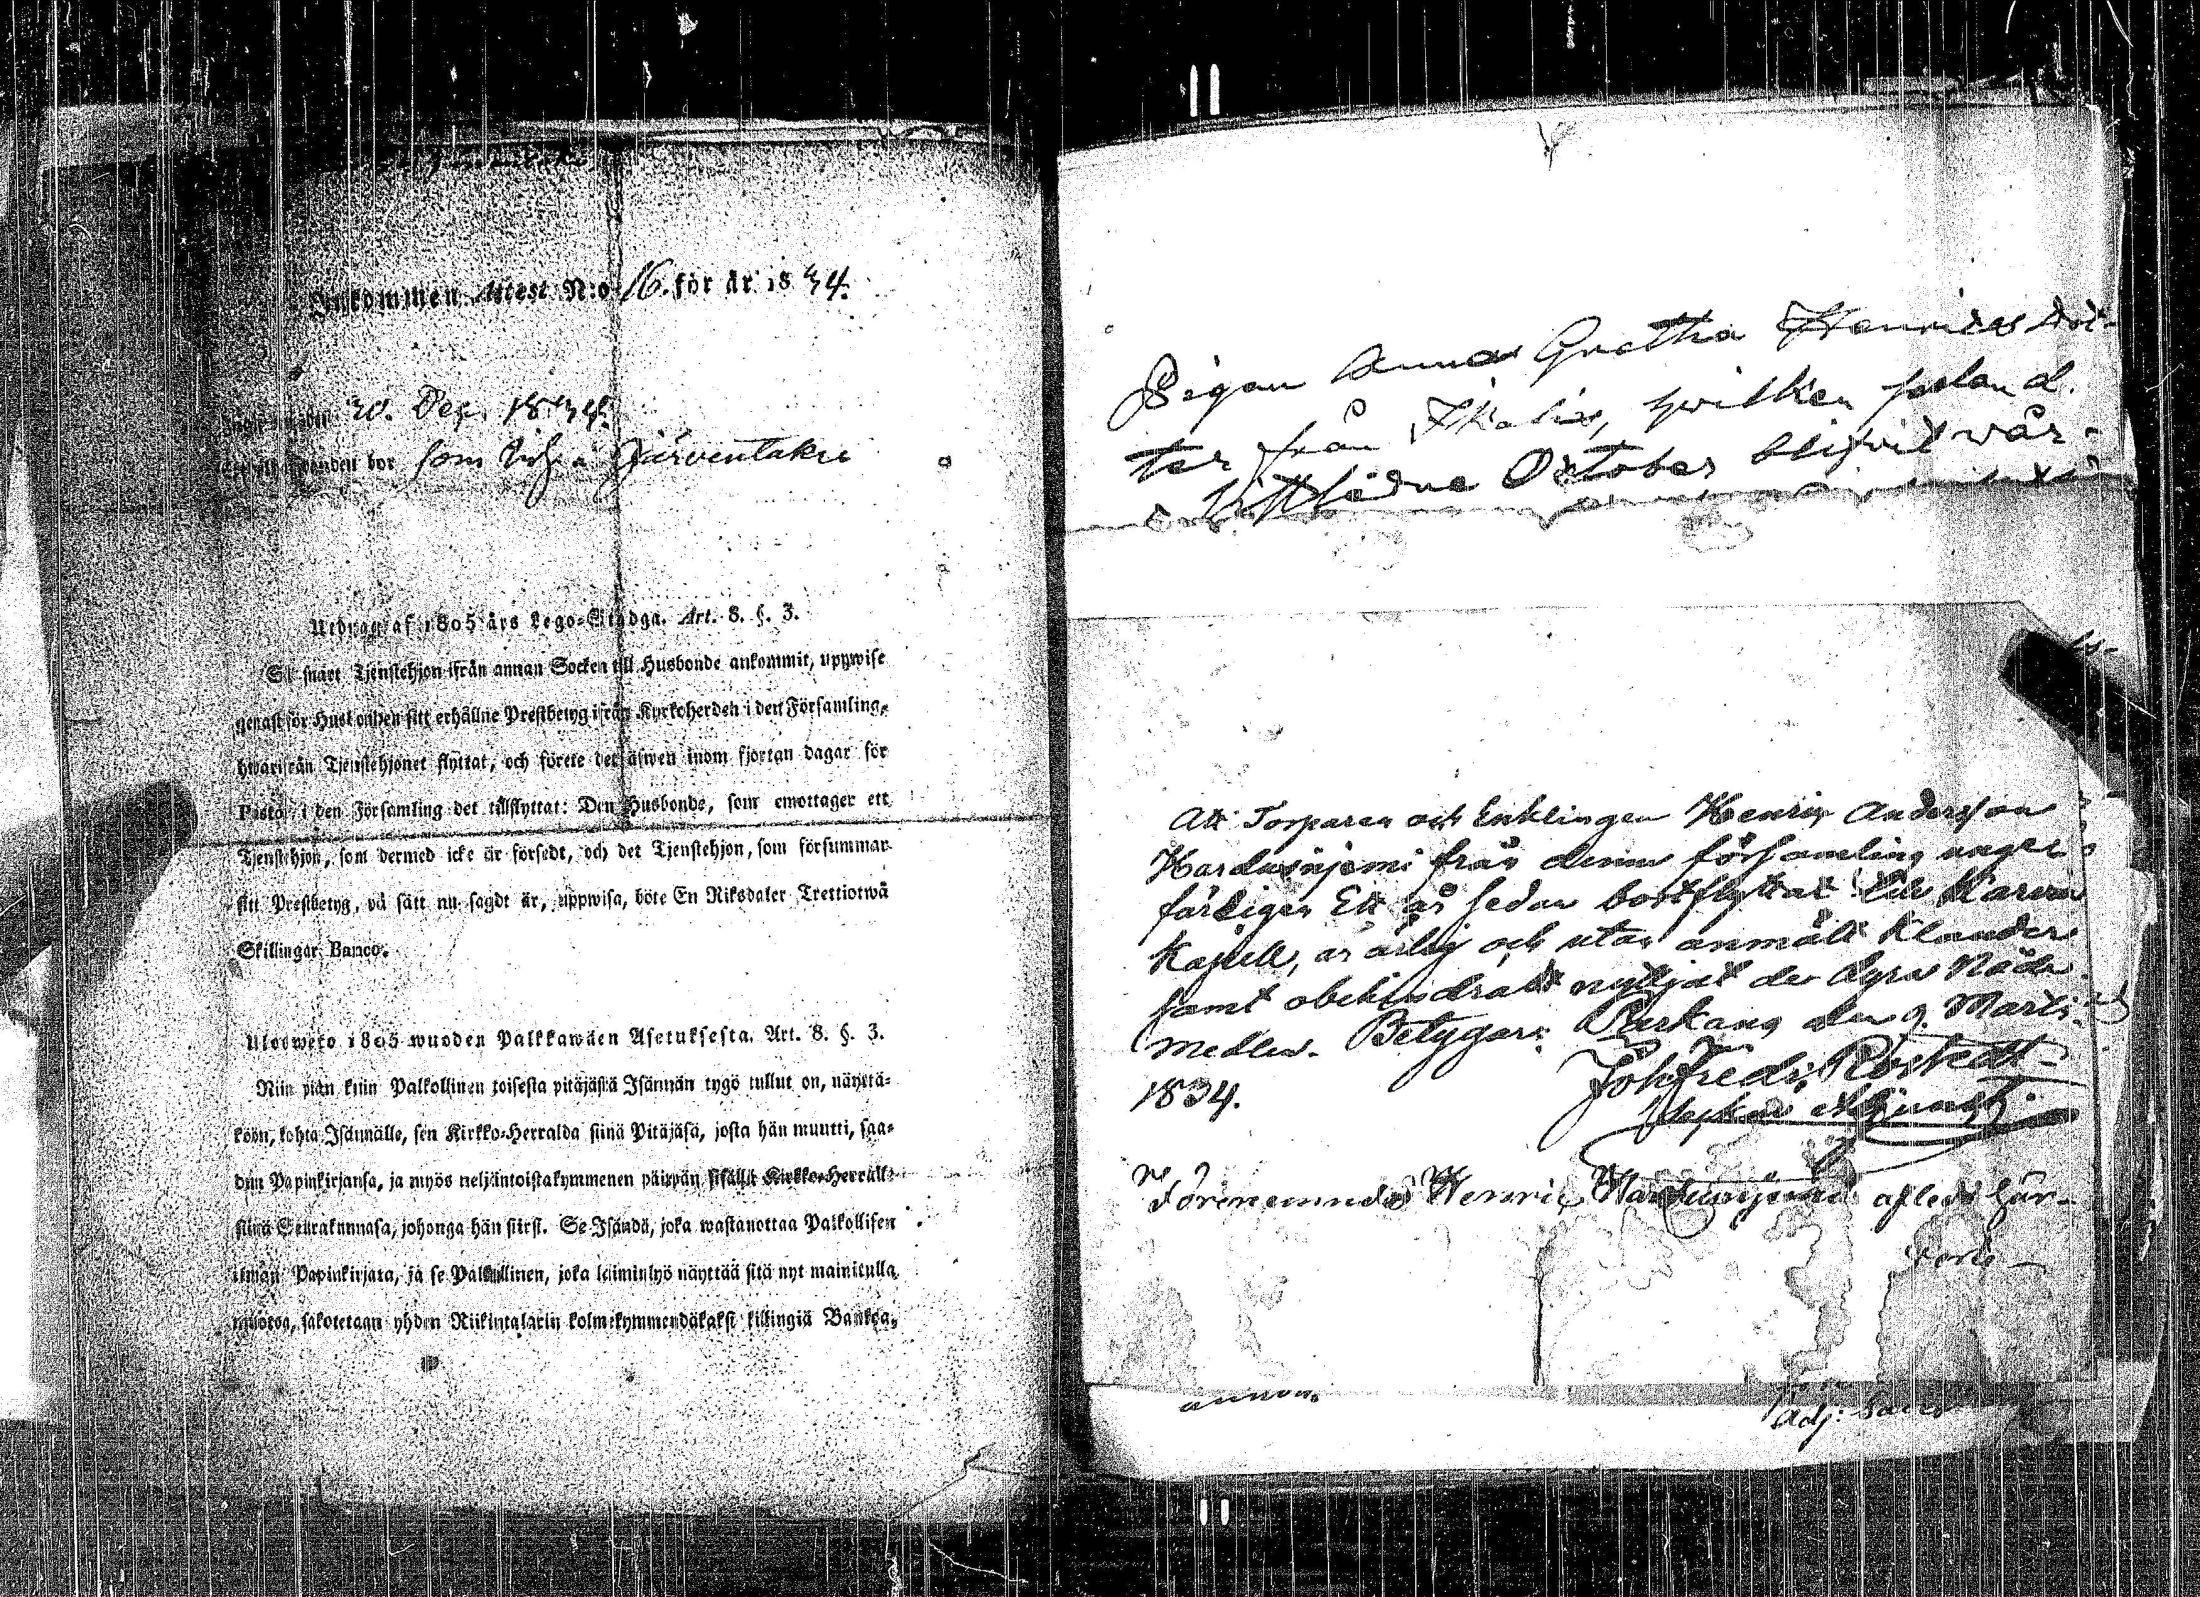 Inkommen Attest N:o 16. för år 1834.
30. Dec. 1834.
bor som Inh. å Järventakri
Utdrag af 1805 års Lego-Stadga. Art. 8. §. 3.
Så snart Tjenstehjon ifrån annan Socken till Husbonde ankommit, uppwise
genast för Husbonden sitt erhållne Prestbetyg ifrån Kyrkoherden i den Församling,
hwarifrån Tjenstehjonet flyttat, och förete det äfwen inom fjortan dagar för
Pastor i den Församling det tillflyttat: Den Husbonde, som emottager ett
Tjenstehjon, som dermed icke är försedt, och det Tjenstehjon, som försummar
sitt Prestbetyg, på sätt nu sagdt är, uppwisa, böte En Riksdaler Trettiotwå
Skillingar Banco.
Ulosweto 1805 wuoden Palkkawäen Asetuksesta. Art. 8. §. 3.
Niin pian kuin Palkollinen toisesta pitäjästä Isännän tygö tullut on, näyttä-
köön, kohta Isännälle, sen Kirkko-Herralda siinä Pitäjäsä, josta hän muutti, saa-
dun Papinkirjansa, ja myös neljäntoistakymmenen päiwän sisällä Kirkko-Herralle
siinä Seurakunnasa, johonga hän siirsi. Se Isändä, joka wastanottaa Palkollisen
ilman Papinkirjata, ja se Palkollinen, joka laiminlyö näyttää sitä nyt mainitulla
muotoa, sakotetaan yhden Riikintalarin kolmekymmendäkaksi killingiä Bankoa.
Pigan Anna Gretha Henricsdot-
ter från Ikalis, hwilken sedan d.
October blifvit vår-
Att Torparen och Enklingen Henric Andersson
Hardusnjemi från denna församling unge-
färligen Ett år sedan bortflyttat till Karvia
Kapell, är ärlig och utan anmält klander
samt obehindradt nyttjat de dyra Nåde
medlen. Betygar; Parkano den 9. Martii
1834. Joh. Fredr. Rostedt
Förenemnde Henric Hardusnjemi afledd här-
annon.
Adj: Sacri